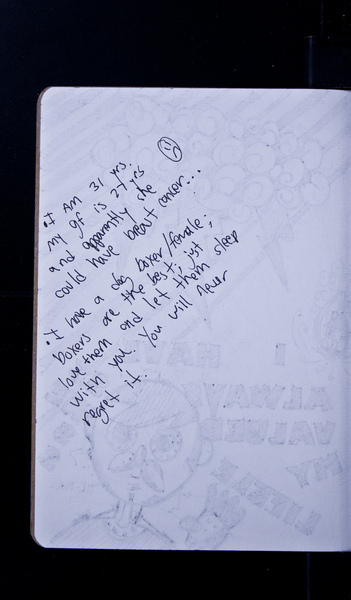 • I AM 31 yrs.
my gf is 27 yrs
and apparently she
could have breast cancer...
• I have a dog boxer/female;
boxers are the best; just
love them and let them sleep
with you. You will never
regret it.
I HAVE
ALWAYS
VALUED
MY
LITTLE